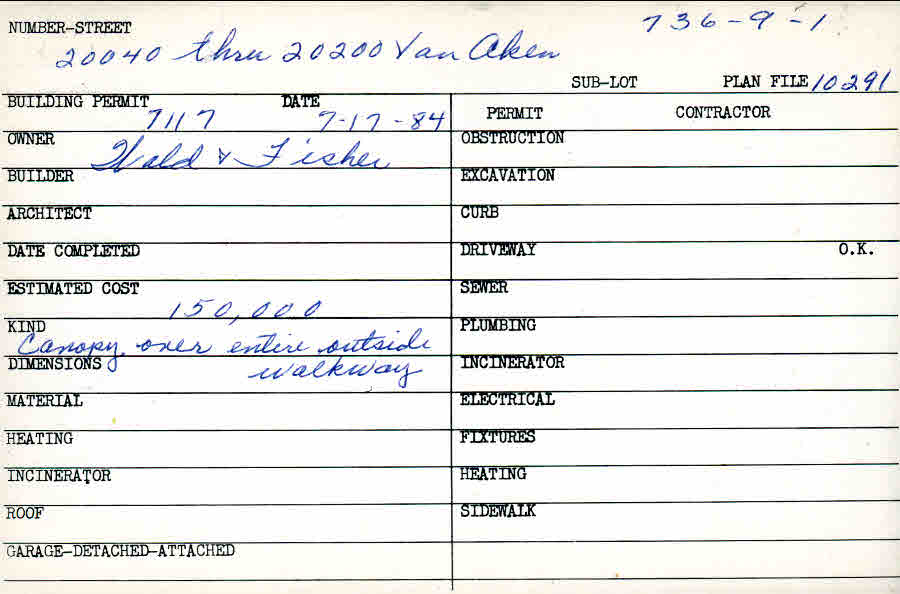 NUMBER-STREET 736-9-1
20040 thru 20200 Van Aken
SUB-LOT PLAN FILE 10291
BUILDING PERMIT DATE
7117 7-17-84
PERMIT CONTRACTOR
OWNER
Wald & Fisher
BUILDER
ARCHITECT
DATE COMPLETED
ESTIMATED COST
150,000
KIND
Canopy over entire outside
DIMENSIONS walkway
MATERIAL
HEATING
INCINERATOR
ROOF
GARAGE-DETACHED-ATTACHED
OBSTRUCTION
EXCAVATION
CURB
DRIVEWAY O.K.
SEWER
PLUMBING
INCINERATOR
ELECTRICAL
FIXTURES
HEATING
SIDEWALK